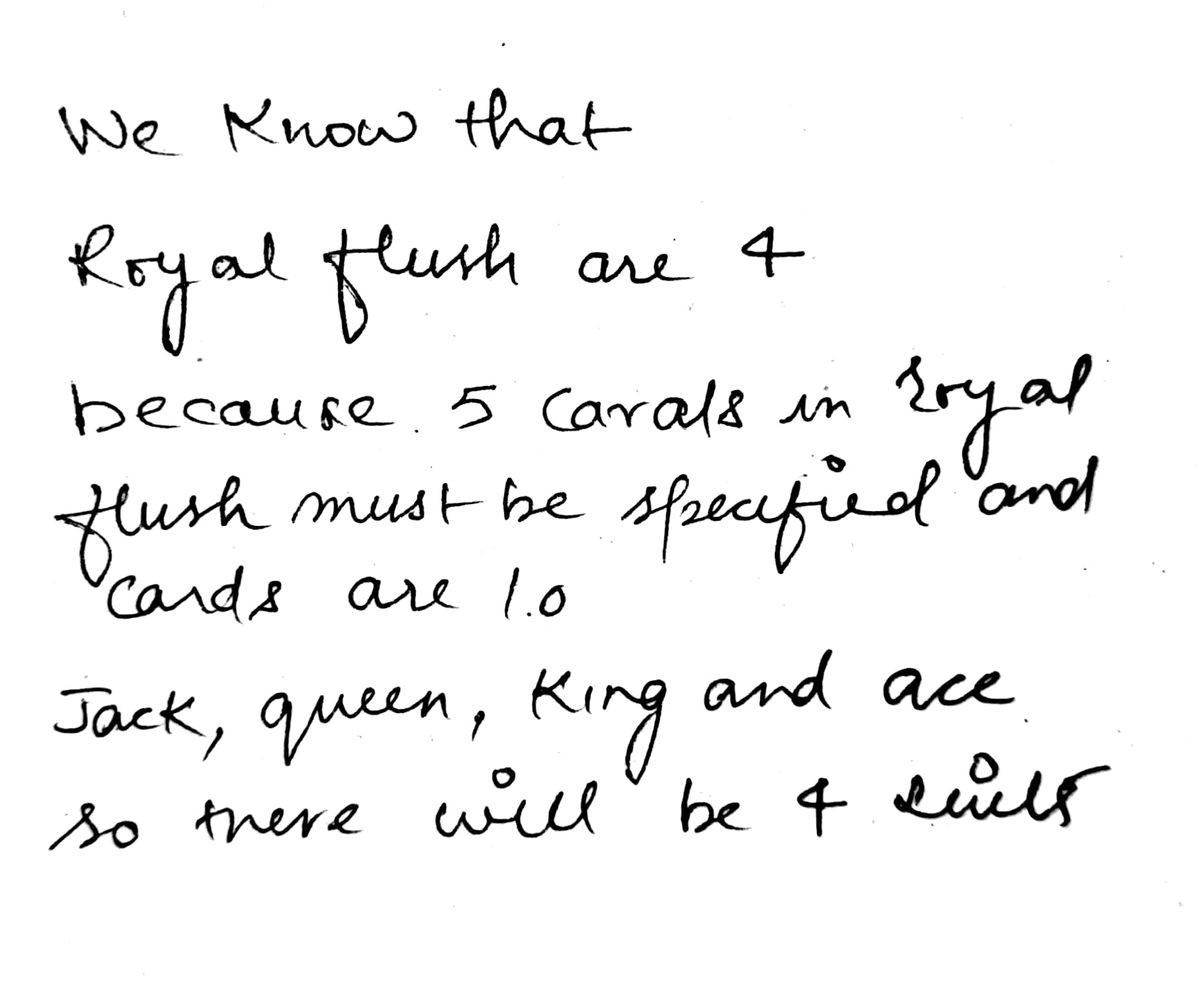 We Know that
Royal flush are 4
because 5 cards in royal
flush must be specified and
cards are 10
Jack, queen, King and ace
so there will be 4 suits